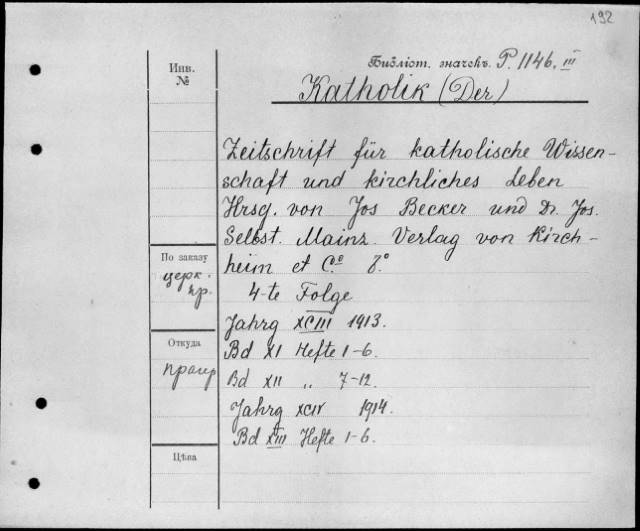 192
Инв.
№
Библіот. значекъ P. 1146. III
Katholik (Der)
Zeitschrift für katholische Wissen-
schaft und kirchliches Leben
Hrsg. von Jos Becker und Dr. Jos.
Selbst. Mainz. Verlag von Kirch-
heim et C.º 8.º
4-te Folge
Jahrg XCIII 1913.
Bd XI Hefte 1-6.
Bd XII „ 7-12.
Jahrg XCIV 1914.
Bd XIII Hefte 1-6.
По заказу
церк.
пр.
Откуда
Цѣна